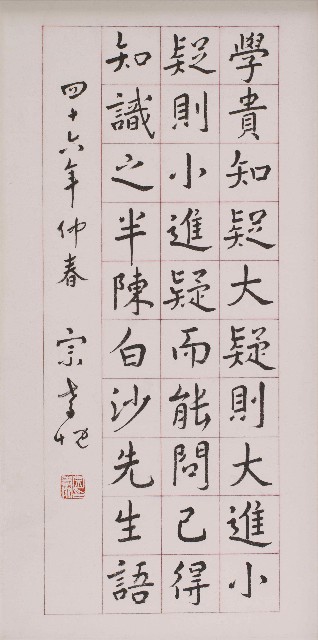 學貴知疑大疑則大進小
疑則小進疑而能問已得
知識之半陳白沙先生語
四十六年仲春 宗孝忱